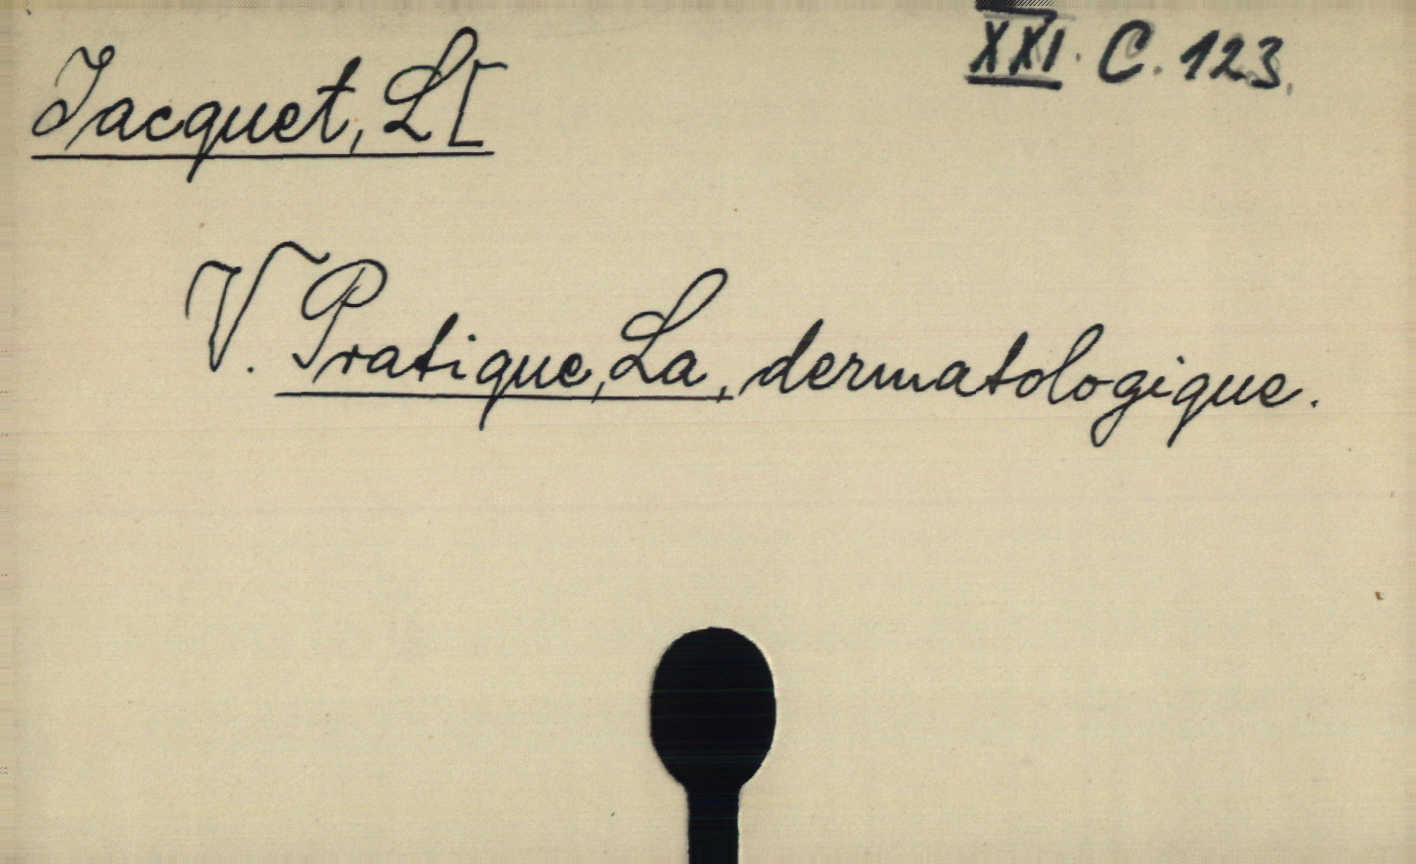 XXI. C. 123.
Jacquet, L[
V. Pratique, La, dermatologique.